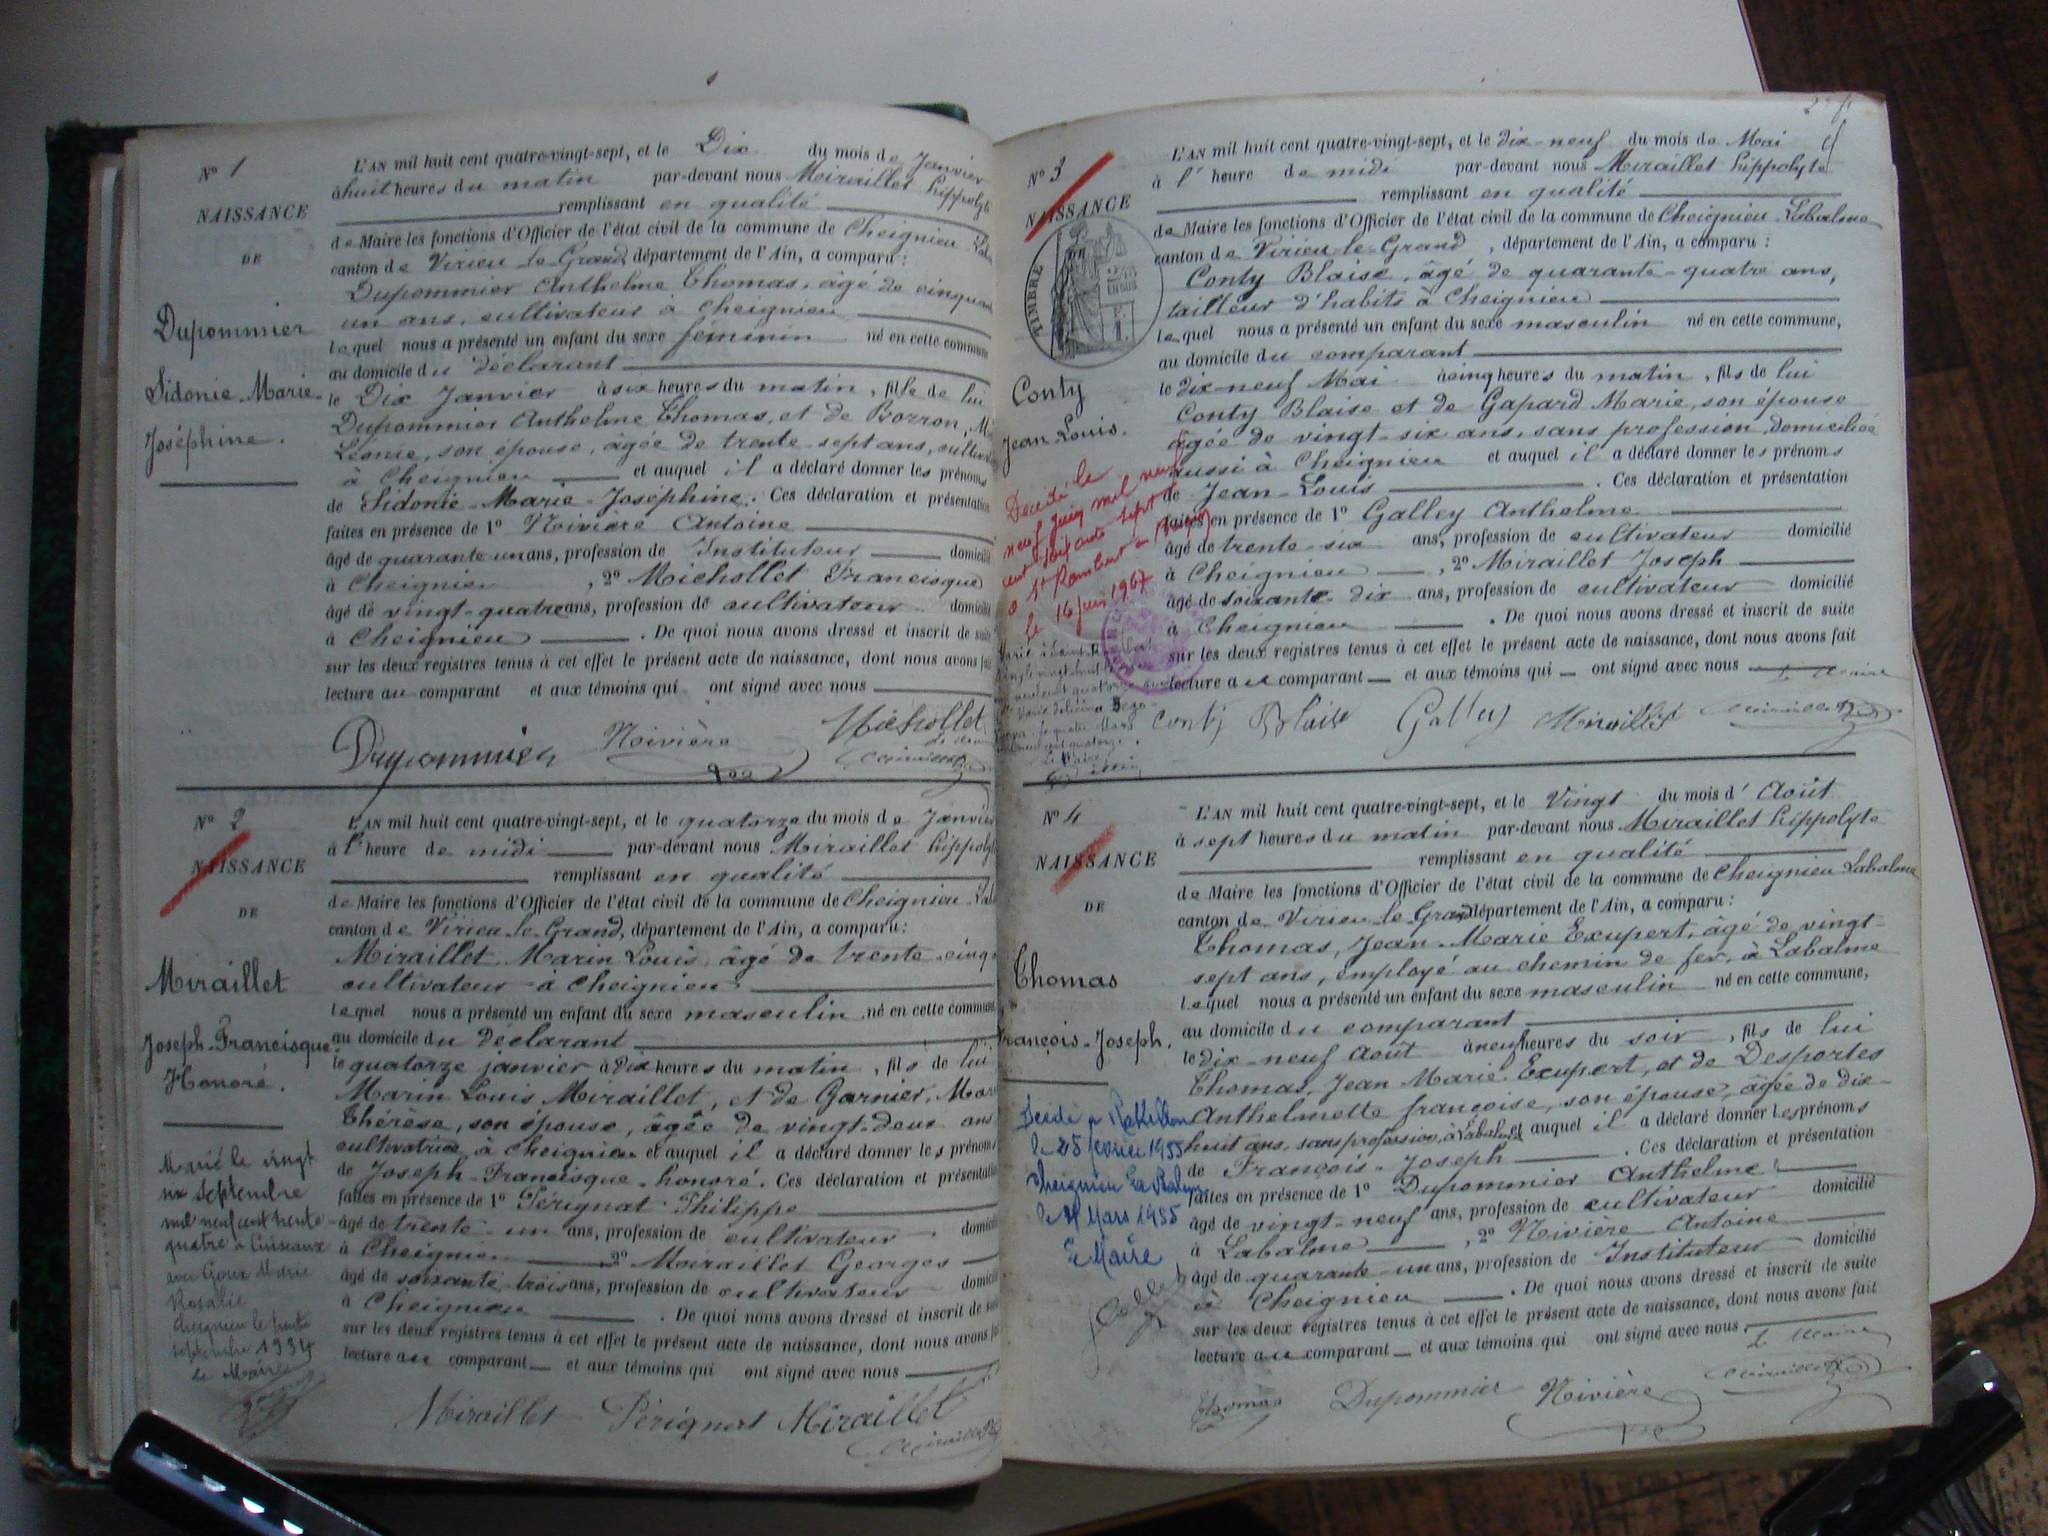 N° 1
NAISSANCE
DE
Dupommier
Sidonie-Marie-
Joséphine.
L'AN mil huit cent quatre-vingt-sept, et le Dix du mois de Janvier
à huit heures du matin par-devant nous Miraillet hippolyte
remplissant en qualité
de Maire les fonctions d'Officier de l'état civil de la commune de Cheignieu-
canton de Virieu-le-Grand, département de l'Ain, a comparu :
Dupommier Anthelme Thomas, âgé de cinquante
un ans, cultivateur à Cheignieu
lequel nous a présenté un enfant du sexe féminin né en cette commune
au domicile du déclarant
le Dix Janvier à six heures du matin, fille de lui
Dupommier Anthelme Thomas, et de Borron,
Léonie, son épouse, âgée de trente-sept ans,
à Cheignieu et auquel il a déclaré donner les prénoms
de Sidonie-Marie-Joséphine. Ces déclaration et présentation
faites en présence de 1° Nivière Antoine
âgé de quarante un ans, profession de Instituteur domicilié
à Cheignieu, 2° Michollet Francisque
âgé de vingt-quatre ans, profession de cultivateur domicilié
à Cheignieu. De quoi nous avons dressé et inscrit de suite
sur les deux registres tenus à cet effet le présent acte de naissance, dont nous avons fait
lecture au comparant et aux témoins qui ont signé avec nous
Dupommier Nivière Michollet
N° 2
NAISSANCE
DE
Miraillet
Joseph-Francisque
Honoré.
Marié le vingt
six septembre
mil neuf cent trente
quatre à Cuiseaux
avec Goux Marie
Rosalie
Cheignieu le trente
septembre 1934
le Maire
L'AN mil huit cent quatre-vingt-sept, et le quatorze du mois de Janvier
à l'heure de midi par-devant nous Miraillet hippolyte
remplissant en qualité
de Maire les fonctions d'Officier de l'état civil de la commune de Cheignieu-
canton de Virieu-le-Grand, département de l'Ain, a comparu :
Miraillet Marin Louis, âgé de trente-cinq
cultivateur à Cheignieu
lequel nous a présenté un enfant du sexe masculin né en cette commune
au domicile du déclarant
le quatorze janvier à Dix heures du matin, fils de lui
Marin Louis Miraillet, et de Garnier, Marie
Thérèse, son épouse, âgée de vingt-deux ans
cultivatrice à Cheignieu et auquel il a déclaré donner les prénoms
de Joseph-Francisque-honoré. Ces déclaration et présentation
faites en présence de 1° Pérignat Philippe
âgé de trente-un ans, profession de cultivateur domicilié
à Cheignieu 2° Miraillet Georges
âgé de soixante trois ans, profession de cultivateur domicilié
à Cheignieu. De quoi nous avons dressé et inscrit de suite
sur les deux registres tenus à cet effet le présent acte de naissance, dont nous avons fait
lecture au comparant et aux témoins qui ont signé avec nous
Miraillet Pérignat Miraillet
N° 3
NAISSANCE
TIMBRE
Conty
Jean Louis.
Décédé le
neuf Juin mil neuf
cent soixante sept
à St Rambert en Bugey
le 16 juin 1967
L'AN mil huit cent quatre-vingt-sept, et le dix-neuf du mois de Mai
à l'heure de midi par-devant nous Miraillet hippolyte
remplissant en qualité
de Maire les fonctions d'Officier de l'état civil de la commune de Cheignieu-Labalme
canton de Virieu-le-Grand, département de l'Ain, a comparu :
Conty Blaise, âgé de quarante-quatre ans,
tailleur d'habits à Cheignieu
lequel nous a présenté un enfant du sexe masculin né en cette commune,
au domicile du comparant
le dix-neuf Mai à cinq heures du matin, fils de lui
Conty Blaise et de Gapard Marie, son épouse
âgée de vingt-six ans, sans profession domiciliée
aussi à Cheignieu et auquel il a déclaré donner les prénoms
de Jean-Louis. Ces déclaration et présentation
faites en présence de 1° Galley Anthelme
âgé de trente-six ans, profession de cultivateur domicilié
à Cheignieu, 2° Miraillet Joseph
âgé de soixante-dix ans, profession de cultivateur domicilié
à Cheignieu. De quoi nous avons dressé et inscrit de suite
sur les deux registres tenus à cet effet le présent acte de naissance, dont nous avons fait
lecture au comparant et aux témoins qui ont signé avec nous
le Maire
Conty Blaise Galley Miraillet
N° 4
NAISSANCE
DE
Thomas
François-Joseph.
Décédé à
le 25 février 1955
Cheignieu La Balme
le Mars 1955
Le Maire
L'AN mil huit cent quatre-vingt-sept, et le Vingt du mois d'Août
à sept heures du matin par-devant nous Miraillet hippolyte
remplissant en qualité
de Maire les fonctions d'Officier de l'état civil de la commune de Cheignieu Labalme
canton de Virieu-le-Grand département de l'Ain, a comparu :
Thomas, Jean-Marie Exupert, âgé de vingt-
sept ans, employé au chemin de fer, à Labalme
lequel nous a présenté un enfant du sexe masculin né en cette commune,
au domicile du comparant
le dix-neuf Août à neuf heures du soir, fils de lui
Thomas, Jean-Marie-Exupert, et de Desportes
Anthelmette françoise, son épouse, âgée de dix-
huit ans, sans profession, à Labalme et auquel il a déclaré donner les prénoms
de François-Joseph. Ces déclaration et présentation
faites en présence de 1° Dupommier Anthelme
âgé de vingt-neuf ans, profession de cultivateur domicilié
à Labalme, 2° Nivière Antoine
âgé de quarante-un ans, profession de Instituteur domicilié
à Cheignieu. De quoi nous avons dressé et inscrit de suite
sur les deux registres tenus à cet effet le présent acte de naissance, dont nous avons fait
lecture au comparant et aux témoins qui ont signé avec nous
le Maire
Thomas Dupommier Nivière